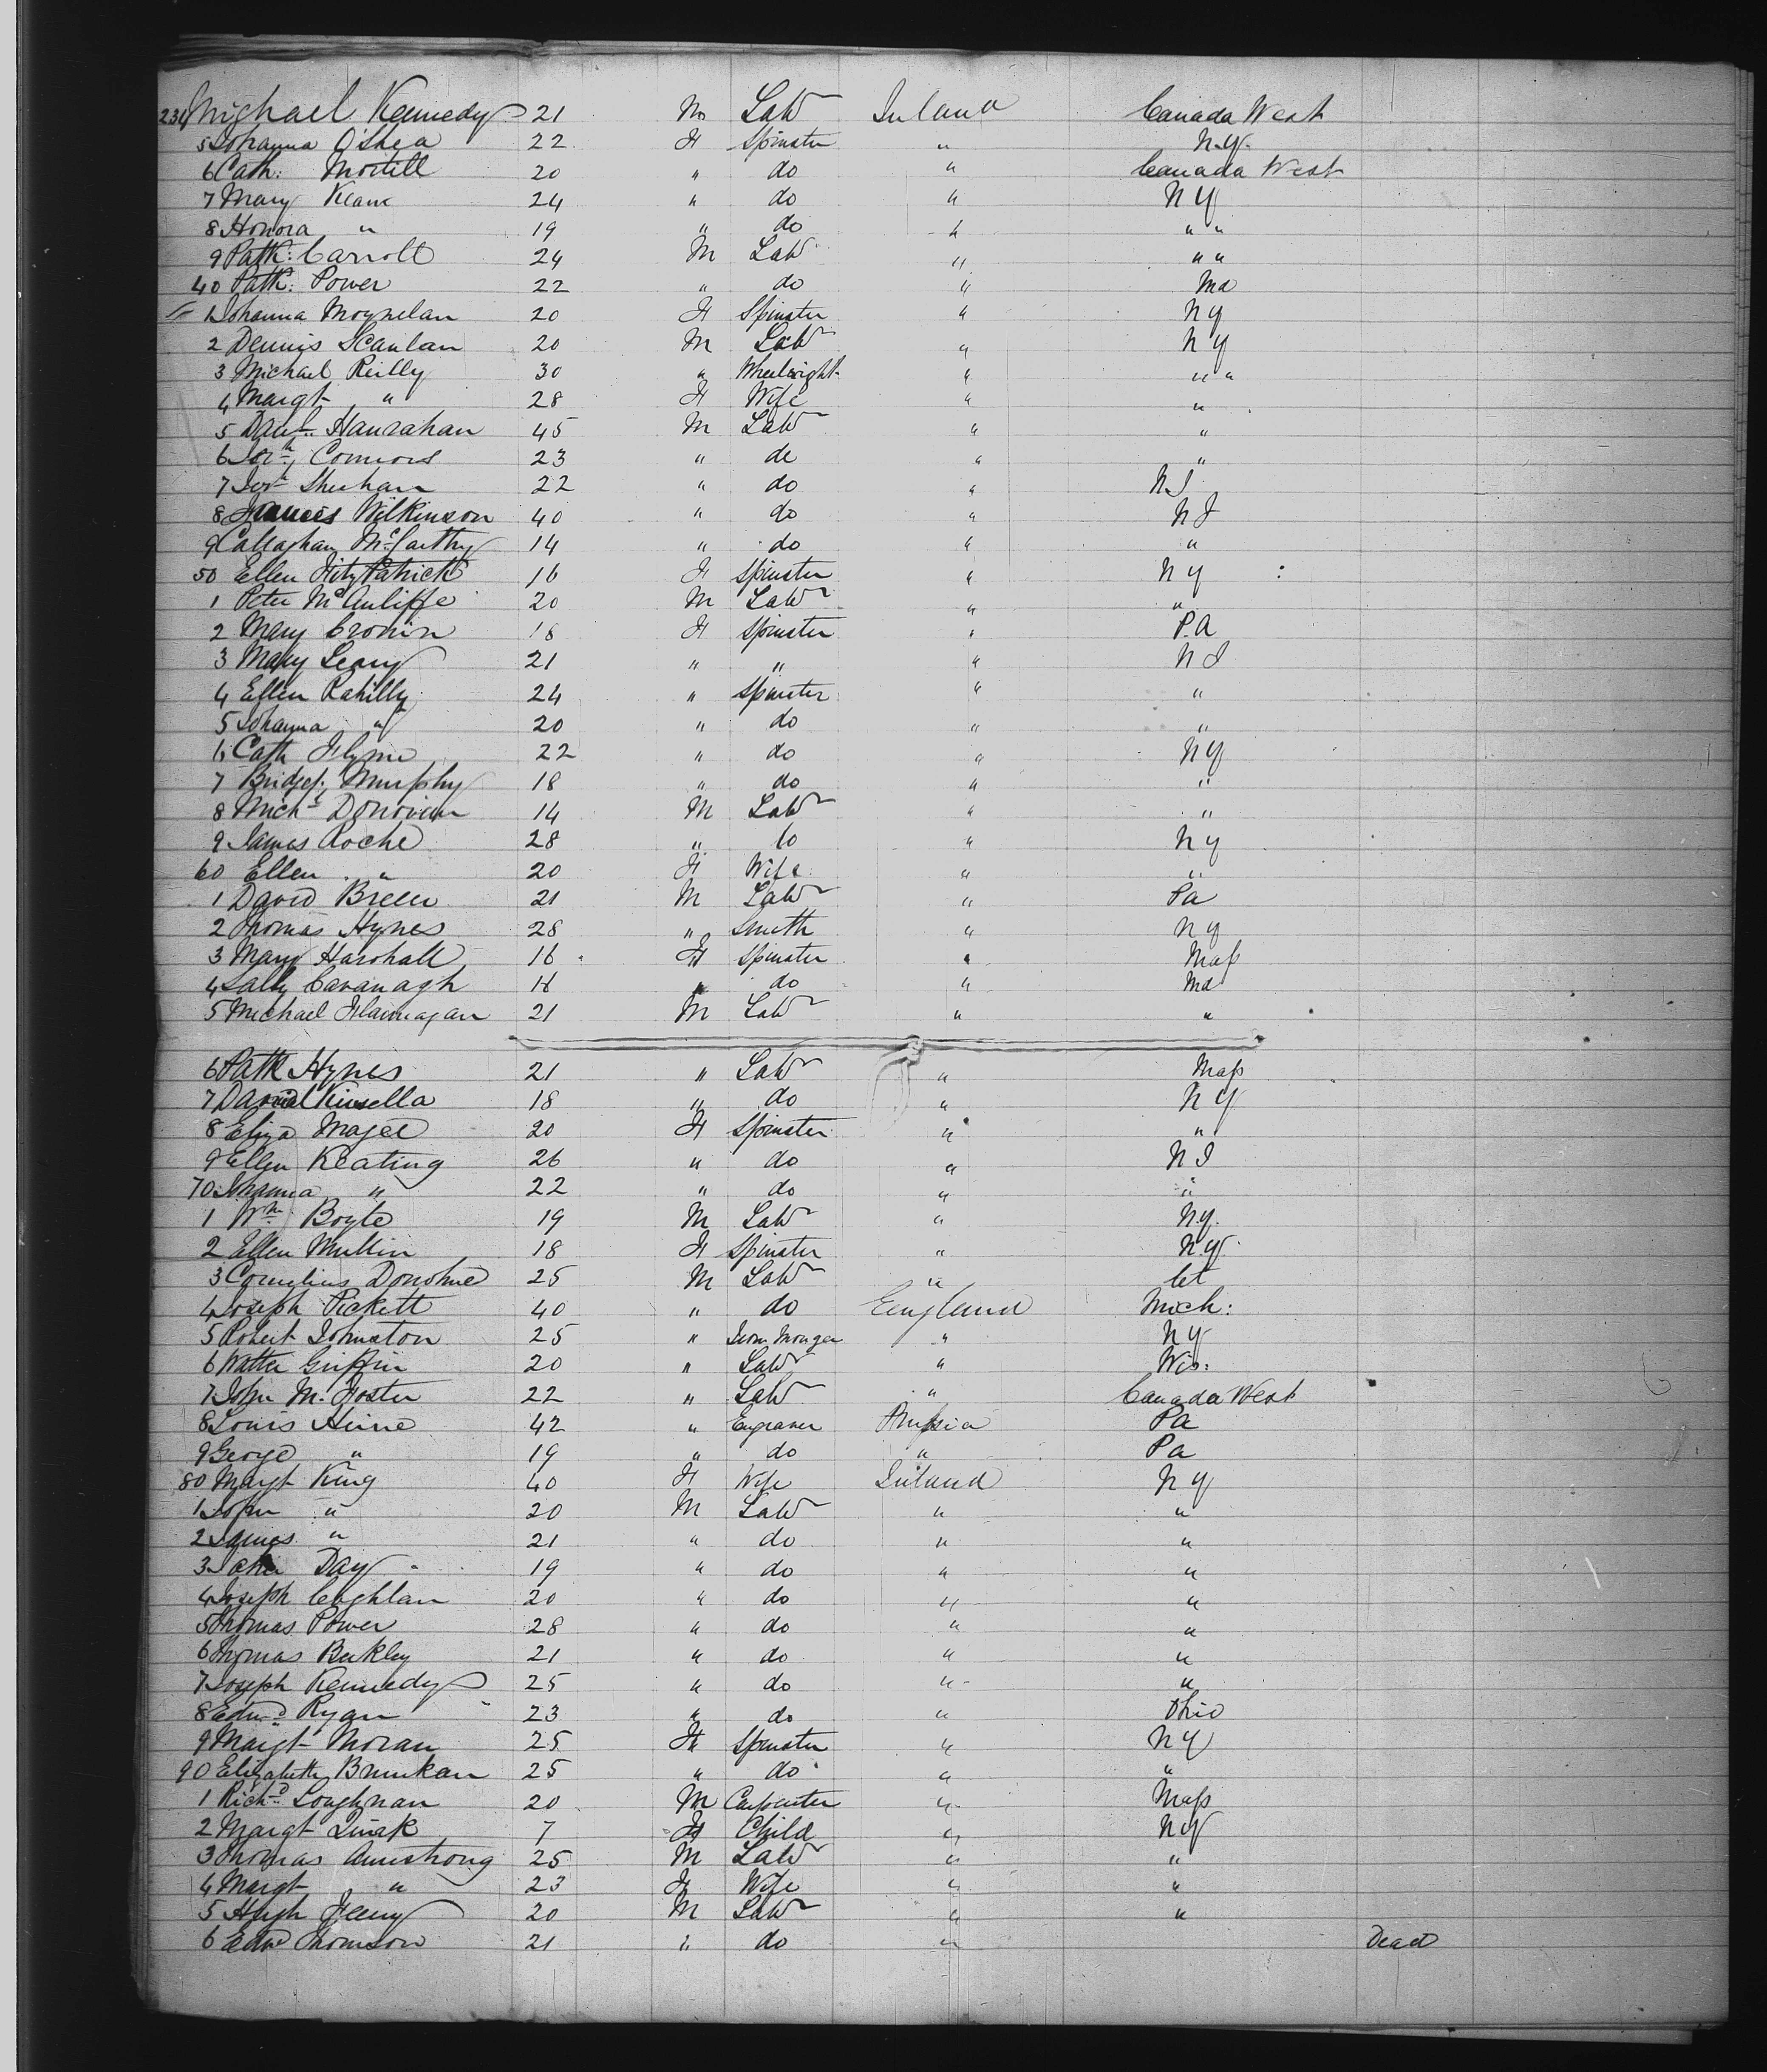 234 Michael Kennedy 21 M Labr Ireland Canada West
5 Johanna O'Shea 22 F Spinster " N.Y.
6 Cath: Mortill 20 " do " Canada West
7 Mary Keane 24 " do " N Y
8 Honora " 19 " do " " "
9 Patk: Carroll 24 M Labr " " "
40 Patk: Power 22 " do " Md
1 Johanna Moynelan 20 F Spinster " N Y
2 Dennis Scanlan 20 M Labr " N Y
3 Michael Reilly 30 " Wheelwright " " "
4 Margt " 28 F Wife " "
5 Danl. Hanrahan 45 M Labr " "
6 Jerh. Connors 23 " do " "
7 Jerh Sheehan 22 " do " N.J
8 Frances Wilkinson 40 " do " N J
9 Callaghan McCarthy 14 " do " "
50 Ellen FitzPatrick 16 F Spinster " N Y :
1 Peter McAuliffe 20 M Labr " "
2 Mary Cronin 18 F Spinster " P.A
3 Mary Leary 21 " " " N J
4 Ellen Rahilly 24 " Spinster " "
5 Johanna " 20 " do " "
6 Cath Flynn 22 " do " N Y
7 Bridget Murphy 18 " do " "
8 Michl Donovan 14 M Labr " "
9 James Roche 28 " do " N Y
60 Ellen " 20 F Wife " "
1 David Breen 21 M Labr " Pa
2 Thomas Hynes 28 " Smith " N Y
3 Mary Harshall 16 F Spinster " Mass
4 Sally Cavanagh 18 " do " Md
5 Michael Flannagan 21 M Labr " "
6 Patk Hynes 21 " Labr " Mass
7 Daniel Kinsella 18 " do " N Y
8 Eliza Magee 20 F Spinster " "
9 Ellen Keating 26 " do " N J
70 Johanna " 22 " do " "
1 Wm Boyle 19 M Labr " N.Y.
2 Ellen Mullin 18 F Spinster " N.Y.
3 Cornelius Donohue 25 M Labr " Ct
4 Joseph Pickett 40 " do England Mich:
5 Robert Johnston 25 " Iron Monger " N Y
6 Walter Griffin 20 " Labr " Wis:
7 John M. Foster 22 " Labr " Canada West
8 Louis Heine 42 " Engraver Prussia Pa
9 George " 19 " do " Pa
80 Margt King 40 F Wife Ireland N Y
1 John " 20 M Labr " "
2 James " 21 " do " "
3 Day 19 " do " "
4 Joseph Coghlan 20 " do " "
5 Thomas Power 28 " do " "
6 Thomas Buckley 21 " do " "
7 Joseph Kennedy 25 " do " "
8 Edwd Ryan 23 " do " Ohio
9 Margt Moran 25 F Spinster " N Y
90 Elizabeth 25 " do " "
1 Richd. Loughnan 20 M Carpenter " Mass
2 Margt 7 F Child " N Y
3 Thomas Armstrong 25 M Labr " "
4 Margt " 23 F Wife " "
5 Hugh Feeny 20 M Labr " "
6 Edwd Thomson 21 " do " Dead